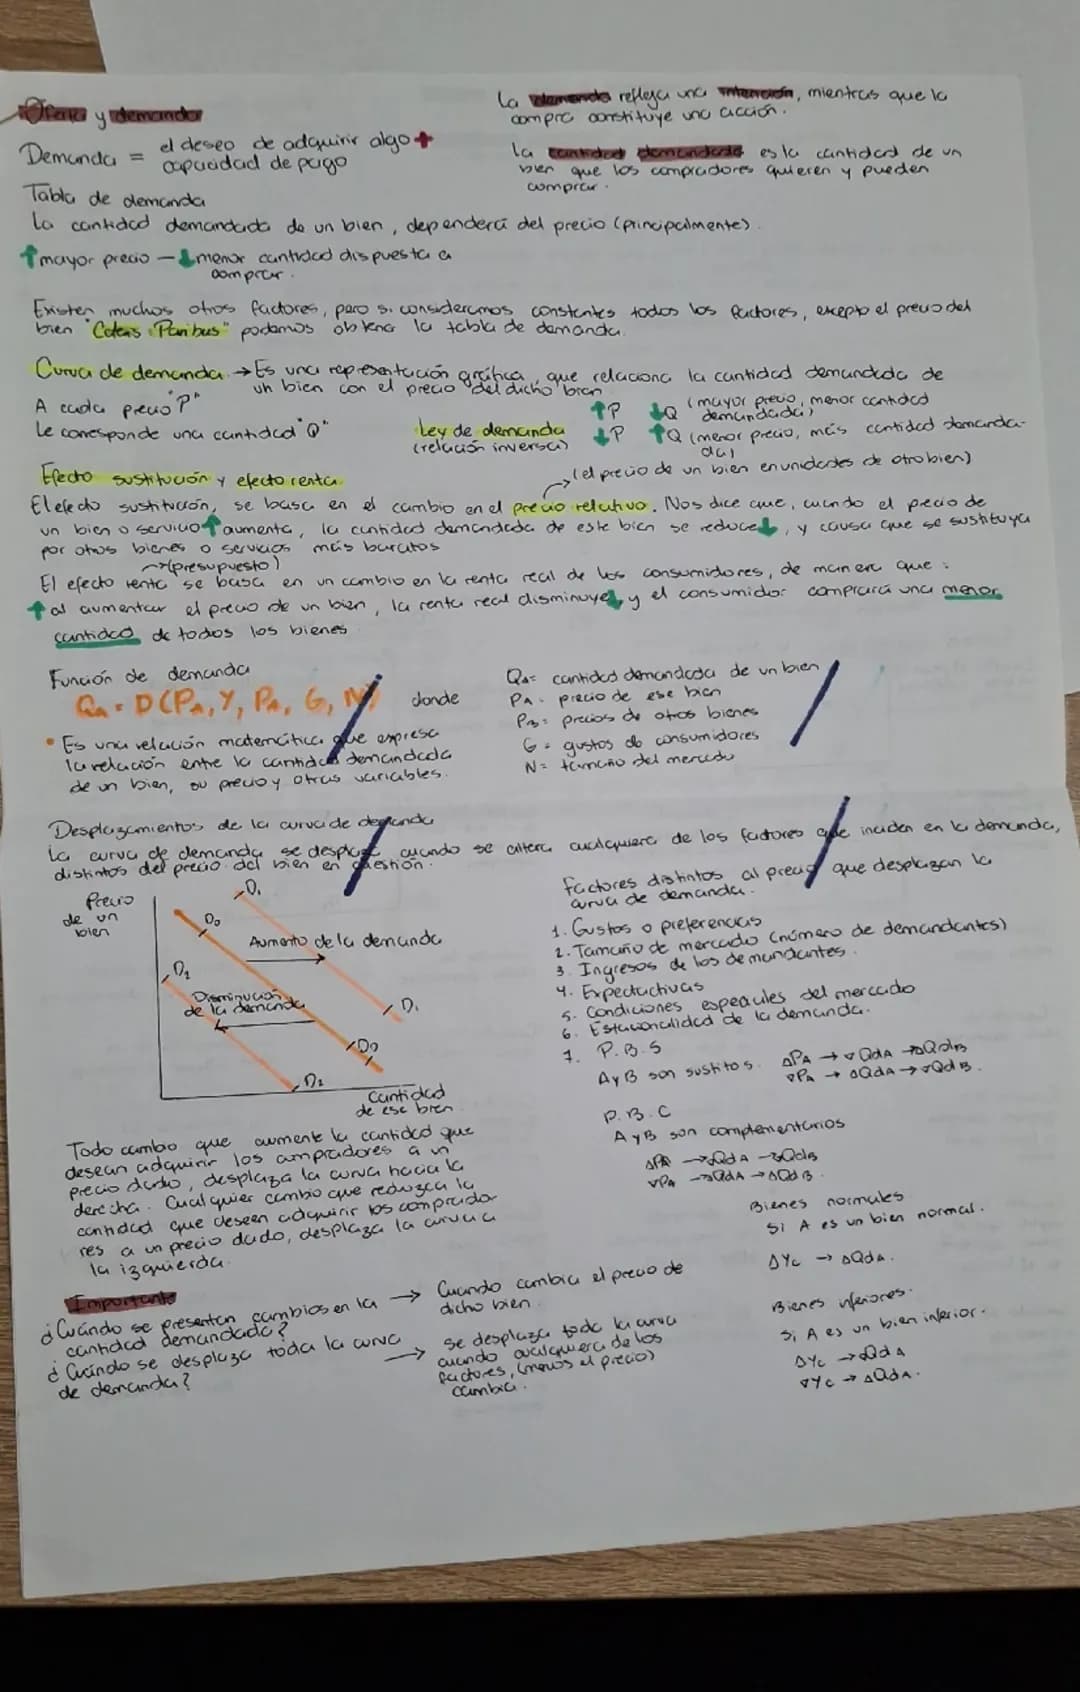 Oferta y demanda
Demanda = el deseo de adquirir algo +
capacidad de pago
La demanda refleja una intención, mientras que la
compra constituye una acción.
La cantidad demandada es la cantidad de un
bien que los compradores quieren y pueden
comprar.
Tabla de demanda
La cantidad demandada de un bien, dependerá del precio (principalmente).
↑ mayor precio - ↓ menor cantidad dispuesta a
comprar.
Existen muchos otros factores, pero si consideramos constantes todos los factores, exepto el precio del
bien "Ceteris Paribus" podemos obtener la tabla de demanda.
Curva de demanda → Es una representación gráfica, que relaciona la cantidad demandada de
un bien con el precio del dicho bien
A cada precio "P"
Le corresponde una cantidad "Q"
Ley de demanda
(relación inversa)
↑P ↓Q (mayor precio, menor cantidad
demandada)
↓P ↑Q (menor precio, más cantidad demanda-
da)
Efecto sustitución y efecto renta
→ (el precio de un bien en unidades de otro bien)
El efecto sustitución, se basa en el cambio en el precio relativo. Nos dice que, cuando el precio de
un bien o servicio ↑ aumenta, la cantidad demandada de este bien se reduce ↓, y causa que se sustituya
por otros bienes o servicios más baratos
→ (presupuesto)
El efecto renta se basa en un cambio en la renta real de los consumidores, de manera que:
↑ al aumentar el precio de un bien, la renta real disminuye ↓ y el consumidor comprará una menor
cantidad de todos los bienes
Función de demanda
QA = D (PA, Y, PA, G, N) donde
QA = cantidad demandada de un bien
PA = precio de ese bien
PB = precios de otros bienes
G = gustos de consumidores
N = tamaño del mercado
• Es una relación matemática que expresa
la relación entre la cantidad demandada
de un bien, su precio y otras variables.
Desplazamientos de la curva de demanda
La curva de demanda se desplaza cuando se altera cualquiera de los factores que inciden en la demanda,
distintos del precio del bien en cuestión.
Precio
de un
bien
D1
D0
Aumento de la demanda
D2
Disminución
de la demanda
D1
D0
D2
Cantidad
de ese bien
Factores distintos al precio que desplazan la
curva de demanda.
1. Gustos o preferencias
2. Tamaño de mercado (número de demandantes)
3. Ingresos de los demandantes.
4. Expectactivas
5. Condiciones especiales del mercado
6. Estacionalidad de la demanda.
7. P.B.S
A y B son sustitos. ΔPA → ∇QdA → ΔQdB
∇PA → ΔQdA → ∇QdB.
P.B.C
A y B son complementarios
ΔPA → ∇QdA → ∇QdB
∇PA → ΔQdA → ΔQdB.
Bienes normales
Si A es un bien normal.
ΔYc → ΔQdA.
Bienes inferiores.
Si A es un bien inferior.
ΔYc → ∇QdA
∇Yc → ΔQdA.
Todo cambio que aumente la cantidad que
desean adquirir los compradores a un
precio dado, desplaza la curva hacia la
derecha. Cualquier cambio que reduzca la
cantidad que deseen adquirir los comprado
res a un precio dado, desplaza la curva a
la izquierda.
Importante
¿Cuándo se presentan cambios en la
cantidad demandada?
→ Cuando cambia el precio de
dicho bien.
¿Cuándo se desplaza toda la curva
de demanda?
→ Se desplaza toda la curva
cuando cualquiera de los
factores, (menos el precio)
cambia.